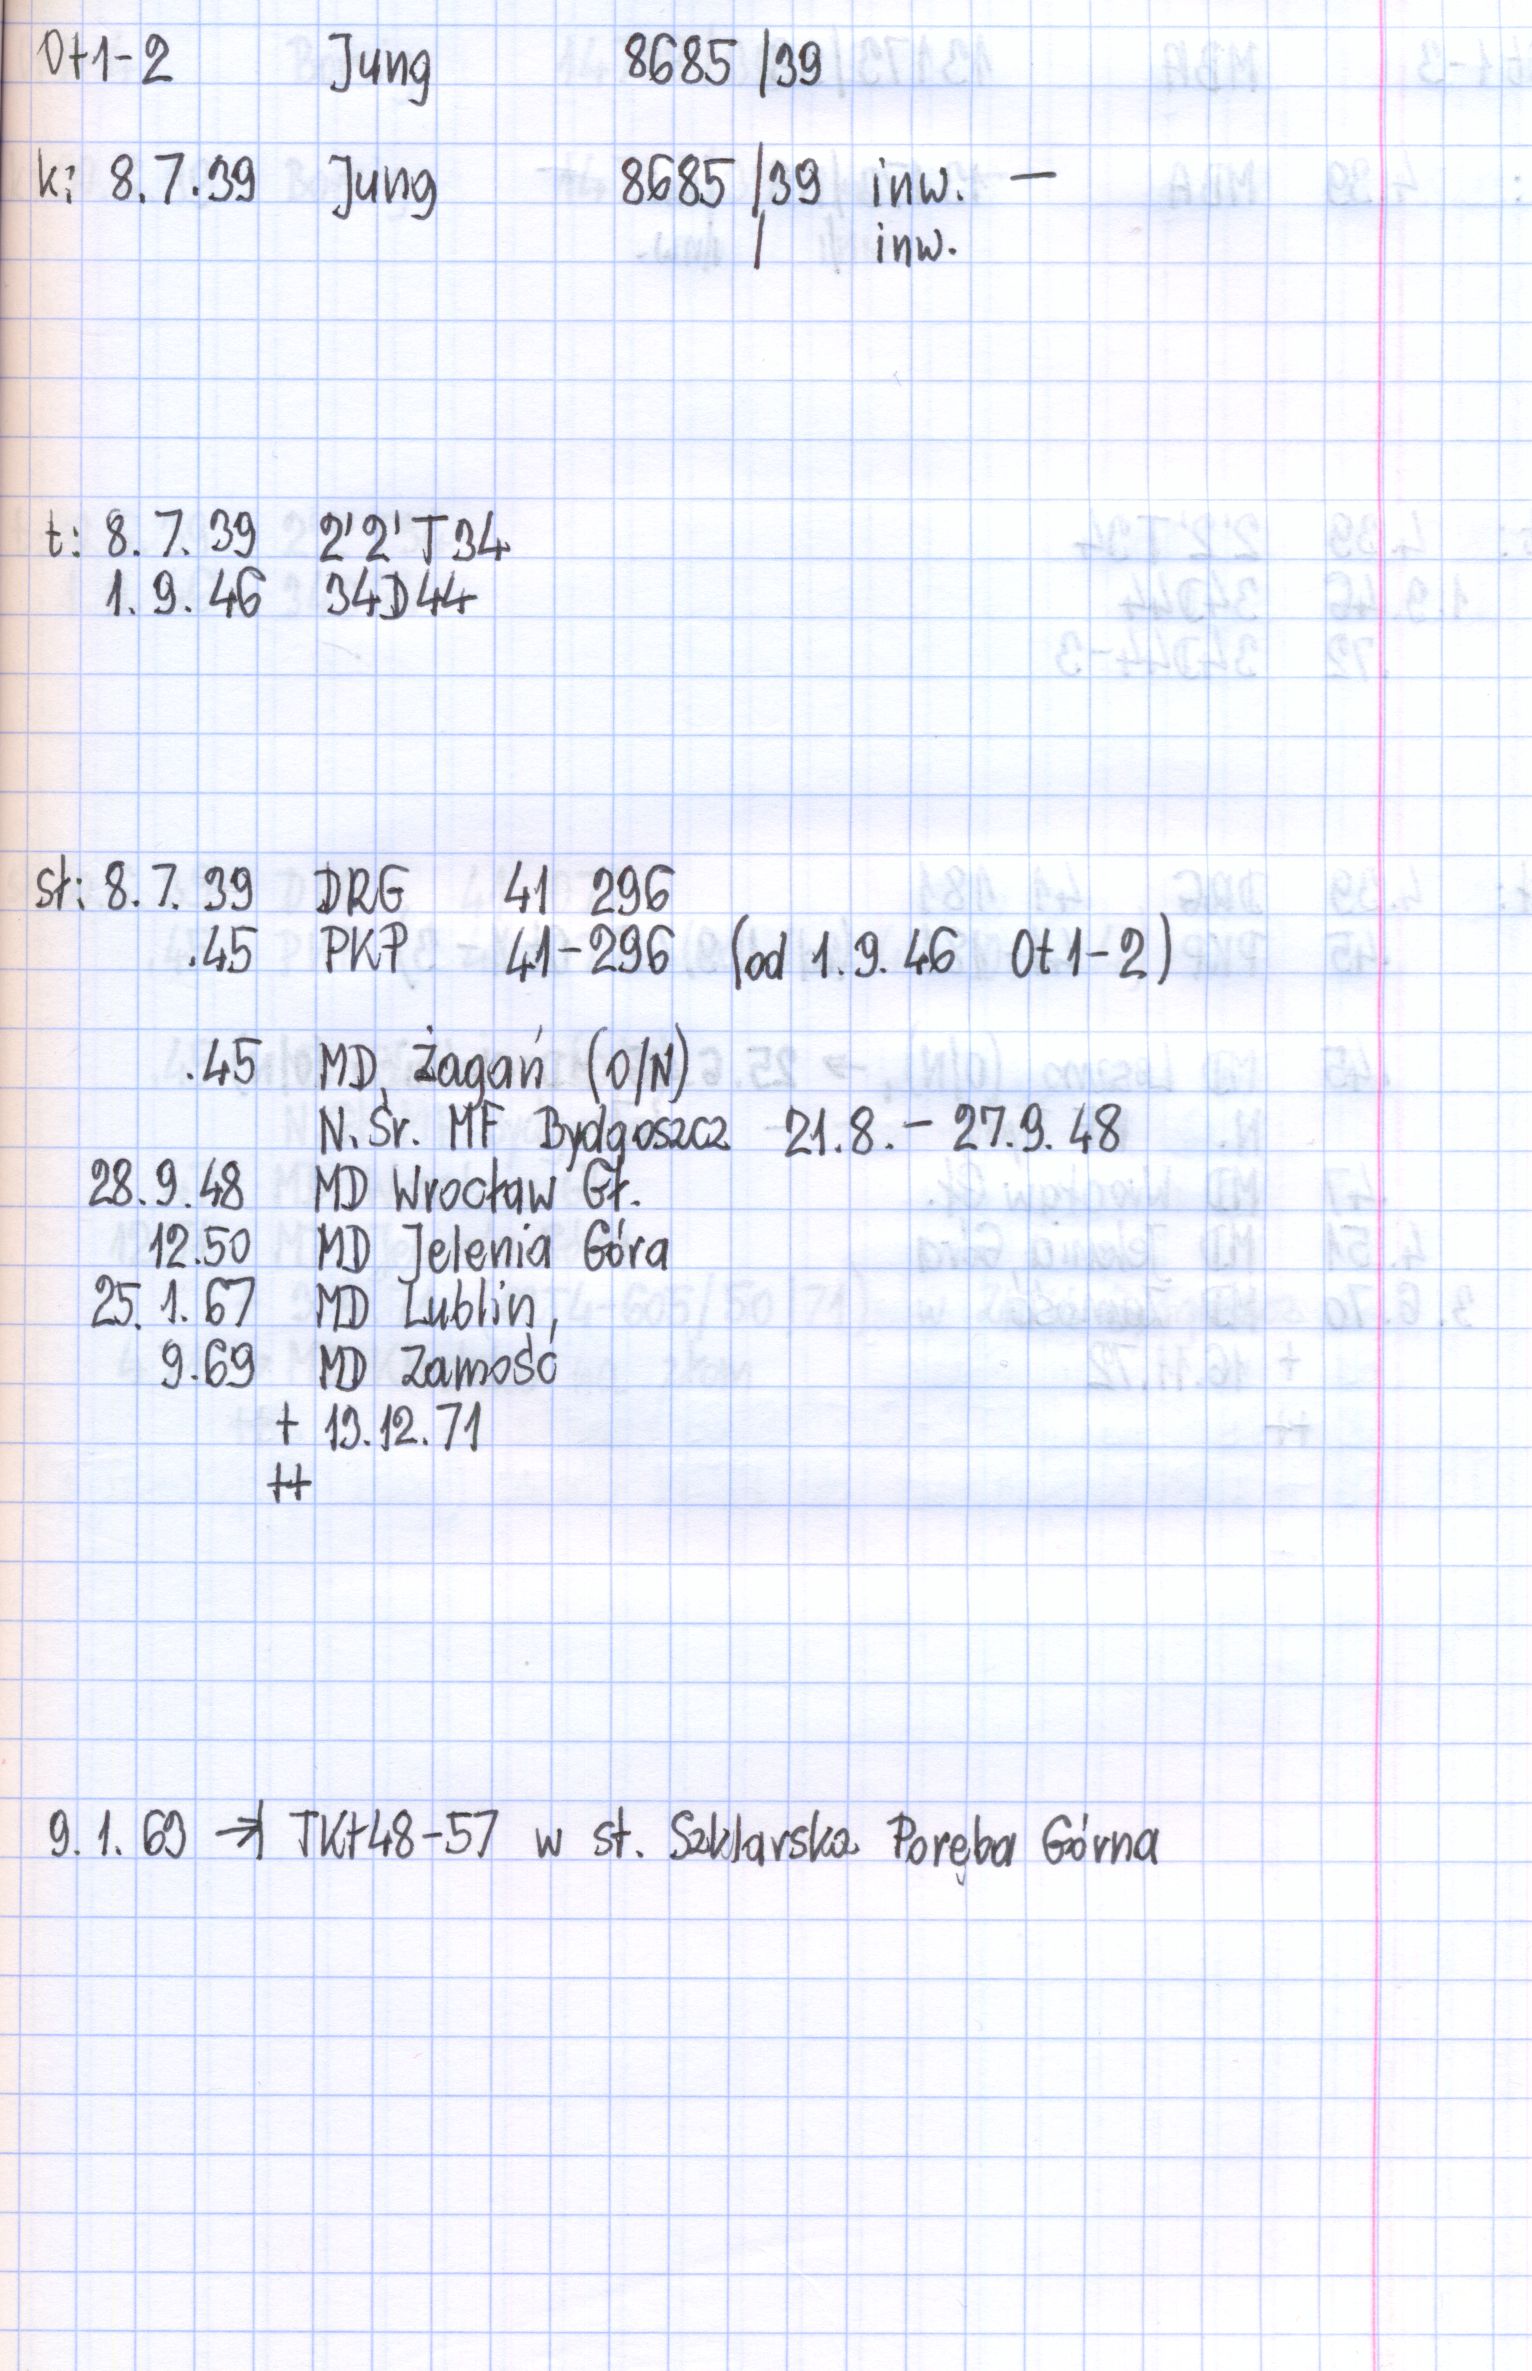 Ot1-2 Jung 8685/39
k: 8.7.39 Jung 8685/39 inw. —
/ inw.
t: 8.7.39 2'2'T34
1.9.46 34D44
st: 8.7.39 DRG 41 296
.45 PKP 41-296 (od 1.9.46 Ot1-2)
.45 MD Żagań (O/N)
N.Śr. MF Bydgoszcz 21.8.-27.9.48
28.9.48 MD Wrocław Gł.
12.50 MD Jelenia Góra
25.1.67 MD Lublin,
9.69 MD Zamość
+ 13.12.71
++
9.1.69 →| TKt48-57 w st. Szklarska Poręba Górna